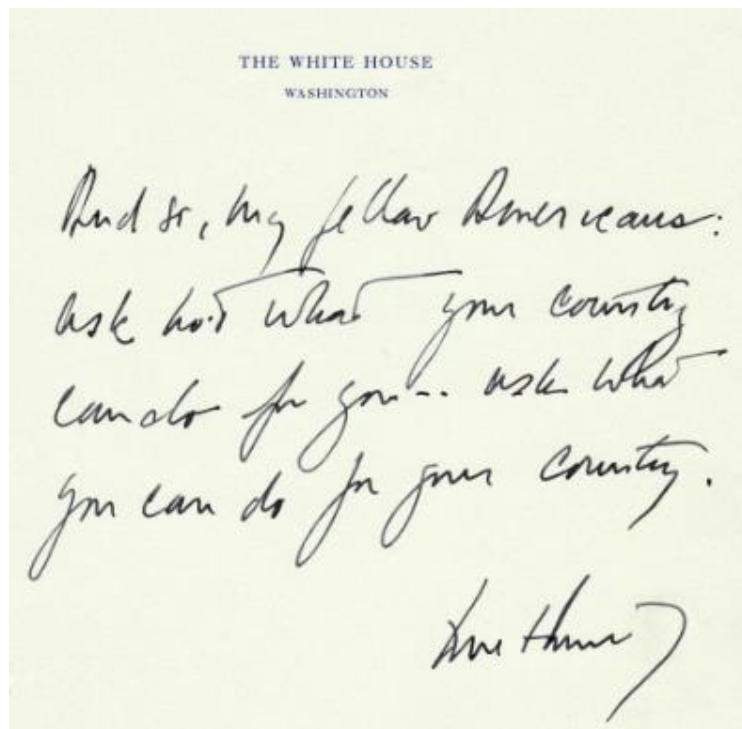 THE WHITE HOUSE
WASHINGTON
And so, my fellow Americans:
ask not what your country
can do for you-- ask what
you can do for your country.